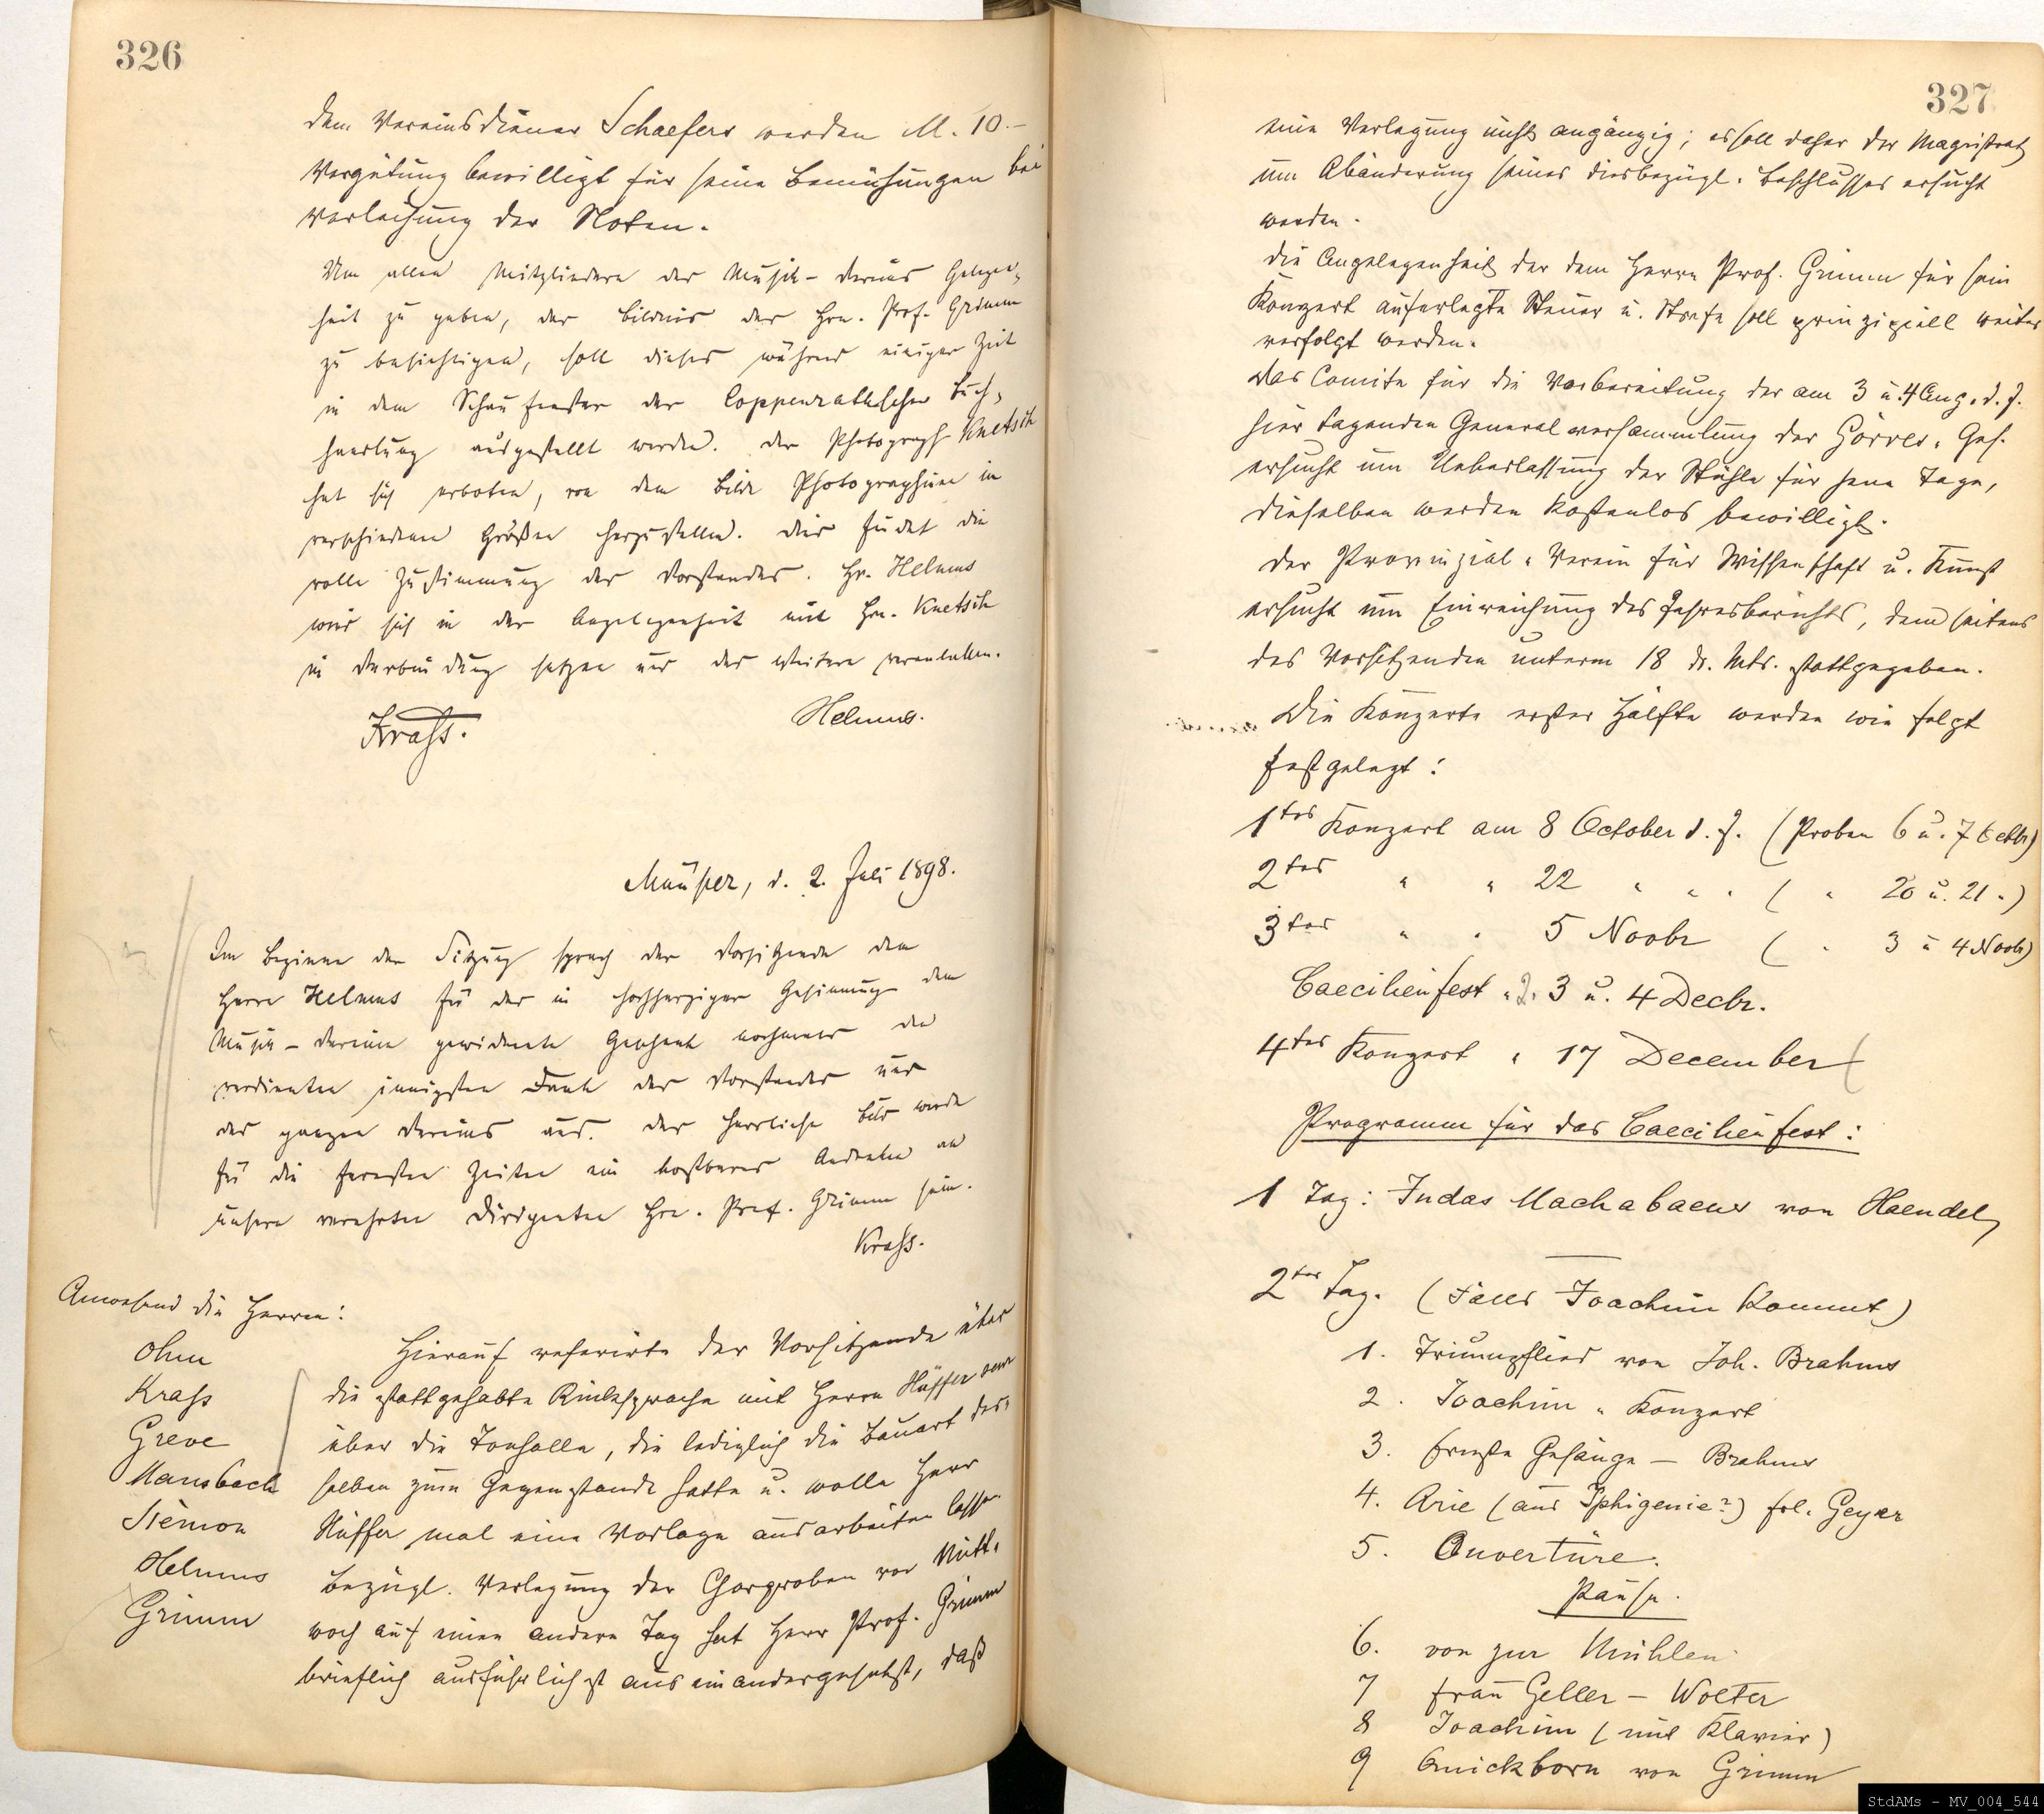 326
dem Vereinsdiener Schaefers werden M. 10.–
Vergütung bewilligt für seine Bemühungen bei
Verleihung der Noten.
Um allen Mitgliedern des Musik-Vereins Gelegen-
heit zu geben, das Bildnis des Hrn. Prof. Grimm
zu besichtigen, soll dieses während einiger Zeit
in dem Schaufenster der Coppenrathschen Buch-
handlung ausgestellt werden. Der Photograph Knetsch
hat sich erboten, von dem Bilde Photographien in
verschiedenen Größen herzustellen. Dies findet die
volle Zustimmung des Vorstandes. Hr. Helmus
wird sich in der Angelegenheit mit Hrn. Knetsch
in Verbindung setzen und das Weitere veranlassen.
Krass. Helmus.
Münster, d. 2. Juli 1898.
Im Beginne der Sitzung sprach der Vorsitzende dem
Herrn Helmus für das in hochherziger Gesinnung dem
Musik-Vereine gewidmete Geschenk nochmals den
verdienten innigsten Dank des Vorstandes und
des ganzen Vereins aus. Das herrliche Bild werde
für die fernsten Zeiten ein kostbares Andenken an
unsern verehrten Dirigenten Hrn. Prof. Grimm sein.
Krass.
Anwesend die Herren:
Ohm
Krass
Greve
Mansbach
Siemon
Helmus
Grimm
Hierauf referirte der Vorsitzende über
die stattgehabte Rücksprache mit Herrn Hüffer
über die Tonhalle, die lediglich die Bauart der-
selben zum Gegenstande hatte u. wolle Herr
Hüffer mal eine Vorlage ausarbeiten lassen.
Bezügl. Verlegung der Chorproben von Mitt-
woch auf einen andern Tag hat Herr Prof. Grimm
brieflich ausführlichst auseinandergesetzt, daß
327
eine Verlegung nicht angängig; es soll daher der Magistrat
um Abänderung seines diesbezügl. Beschlusses ersucht
werden.
Die Angelegenheit der dem Herrn Prof. Grimm für sein
Konzert auferlegte Steuer u. Strafe soll prinzipiell weiter
verfolgt werden.
Das Comite für die Vorbereitung der am 3 u. 4 Aug. d. J.
hier tagenden Generalversammlung der Görres-Ges.
ersucht um Ueberlassung der Stühle für jene Tage,
dieselben werden kostenlos bewilligt.
Der Provinzial-Verein für Wissenschaft u. Kunst
ersucht um Einreichung des Jahresberichts, dem seitens
des Vorsitzenden unterm 18 ds. Mts. stattgegeben.
Die Konzerte erster Hälfte werden wie folgt
festgelegt:
1tes Konzert am 8 October d. J. (Proben 6 u. 7 Octbr)
2tes " " 22 " " " ( " 20 u. 21 ")
3tes " " 5 Novbr ( " 3 u 4 Novbr)
Caecilienfest " 2. 3 u. 4 Decbr.
4tes Konzert " 17 December (
Programm für das Caecilienfest:
1 Tag: Judas Machabaeus von Haendel,
2ter Tag. (Falls Joachim kommt)
1. Triumpflied von Joh. Brahms
2. Joachim - Konzert
3. Ernste Gesänge – Brahms
4. Arie (aus Iphigenie?) frl. Geyer
5. Ouvertüre.
Pause.
6. von zur Mühlen
7 Frau Geller – Wolter
8 Joachim (mit Klavier)
9 Quickborn von Grimm
StdAMs - MV 004_544